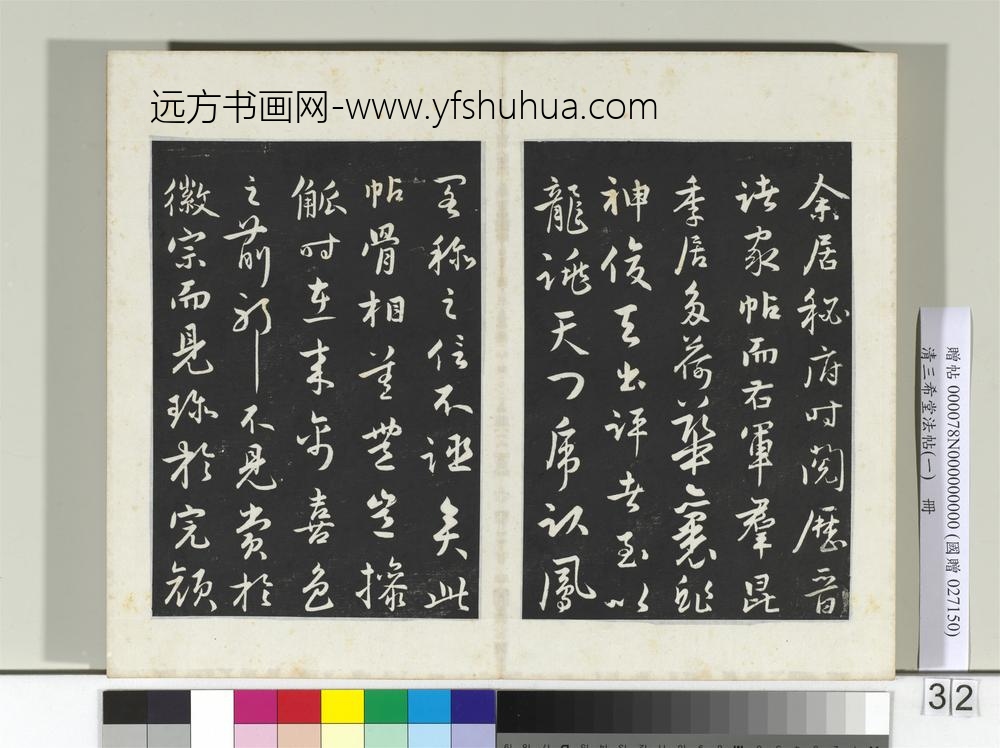 远方书画网-www.yfshuhua.com
余居秘府時閱歷晉
諸家帖而右軍羣昆
季居多荷華裹
神俊天出評者至以
龍跳天門虎臥鳳
閣稱之信不誣矣此
帖骨相差豐豈操
觚時在來禽喜色
之前邪不見賞於
徽宗而見珍於完顏
贈帖 000078N000000000 (國贈 027150)
清三希堂法帖(一) 冊
32